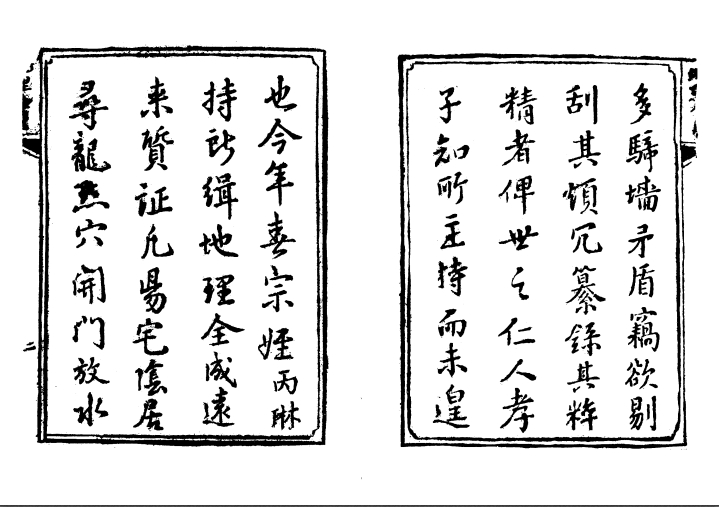 多騎墻矛盾竊欲剔
刮其煩冗纂錄其粹
精者俾世之仁人孝
子知所主持而未遑
也今年春宗姪丙琳
持所緝地理全成遠
来質証凡陽宅陰居
尋龍點穴開門放水
二